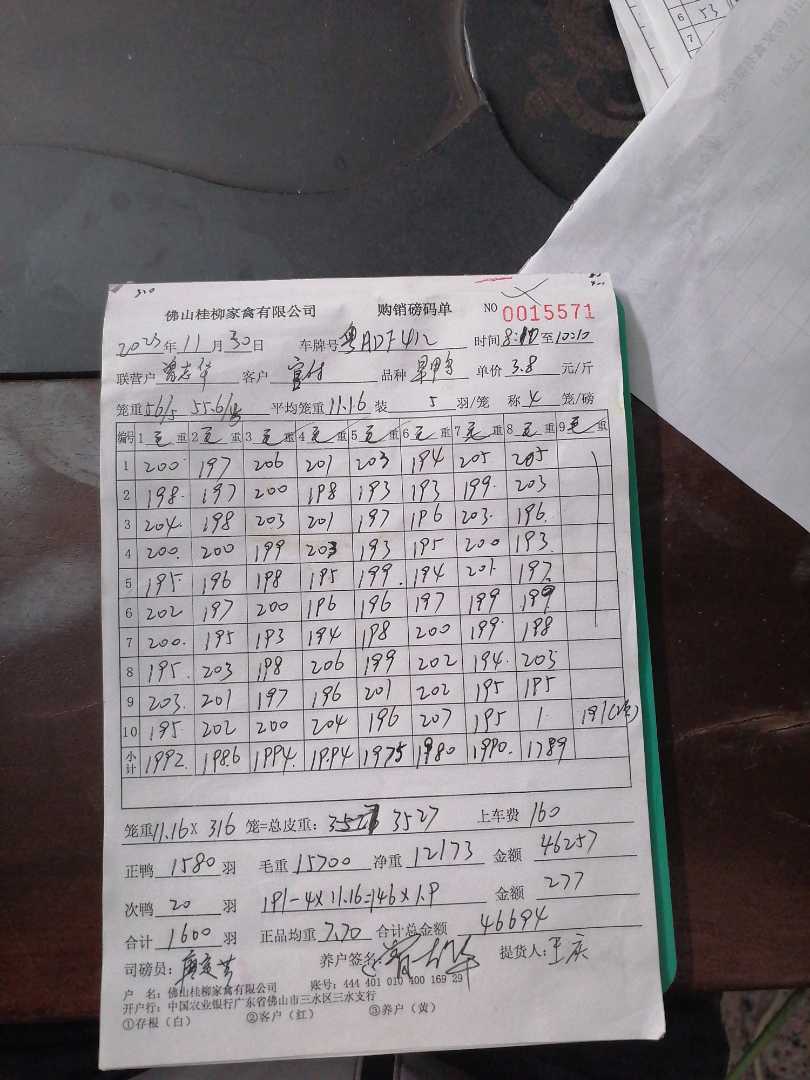 佛山桂柳家禽有限公司 购销磅码单 NO 0015571
2023年11月30日 车牌号 粤ADF412 时间8:10至10:10
联营户 曾志华 客户 官村 品种 旱鸭 单价 3.8 元/斤
笼重56/5 55.6/ 平均笼重11.16 装 5 羽/笼 称 4 笼/磅
编号 1毛重 2毛重 3毛重 4毛重 5毛重 6毛重 7毛重 8毛重 9毛重
1 200 197 206 201 203 194 205 205
2 198 197 200 198 193 193 199 203
3 204 198 203 201 197 196 203 196
4 200 200 199 203 193 195 200 193
5 195 196 198 195 199 194 201 197
6 202 197 200 196 196 197 199 199
7 200 195 193 194 198 200 199 198
8 195 203 198 206 199 202 194 203
9 203 201 197 196 201 202 195 195
10 195 202 200 204 196 207 195 1 191(次)
小计 1992 1986 1994 1994 1975 1980 1990 1789
笼重11.16× 316 笼=总皮重: 3527 上车费 160
正鸭 1580 羽 毛重 15700 净重 12173 金额 46257
次鸭 20 羽 191-4×11.16=146×1.9 金额 277
合计 1600 羽 正品均重 7.70 合计总金额 46694
司磅员: 养户签名 提货人: 王庆
户 名: 佛山桂柳家禽有限公司 账号: 444 401 010 400 169 29
开户行: 中国农业银行广东省佛山市三水区三水支行
①存根(白) ②客户(红) ③养户(黄)